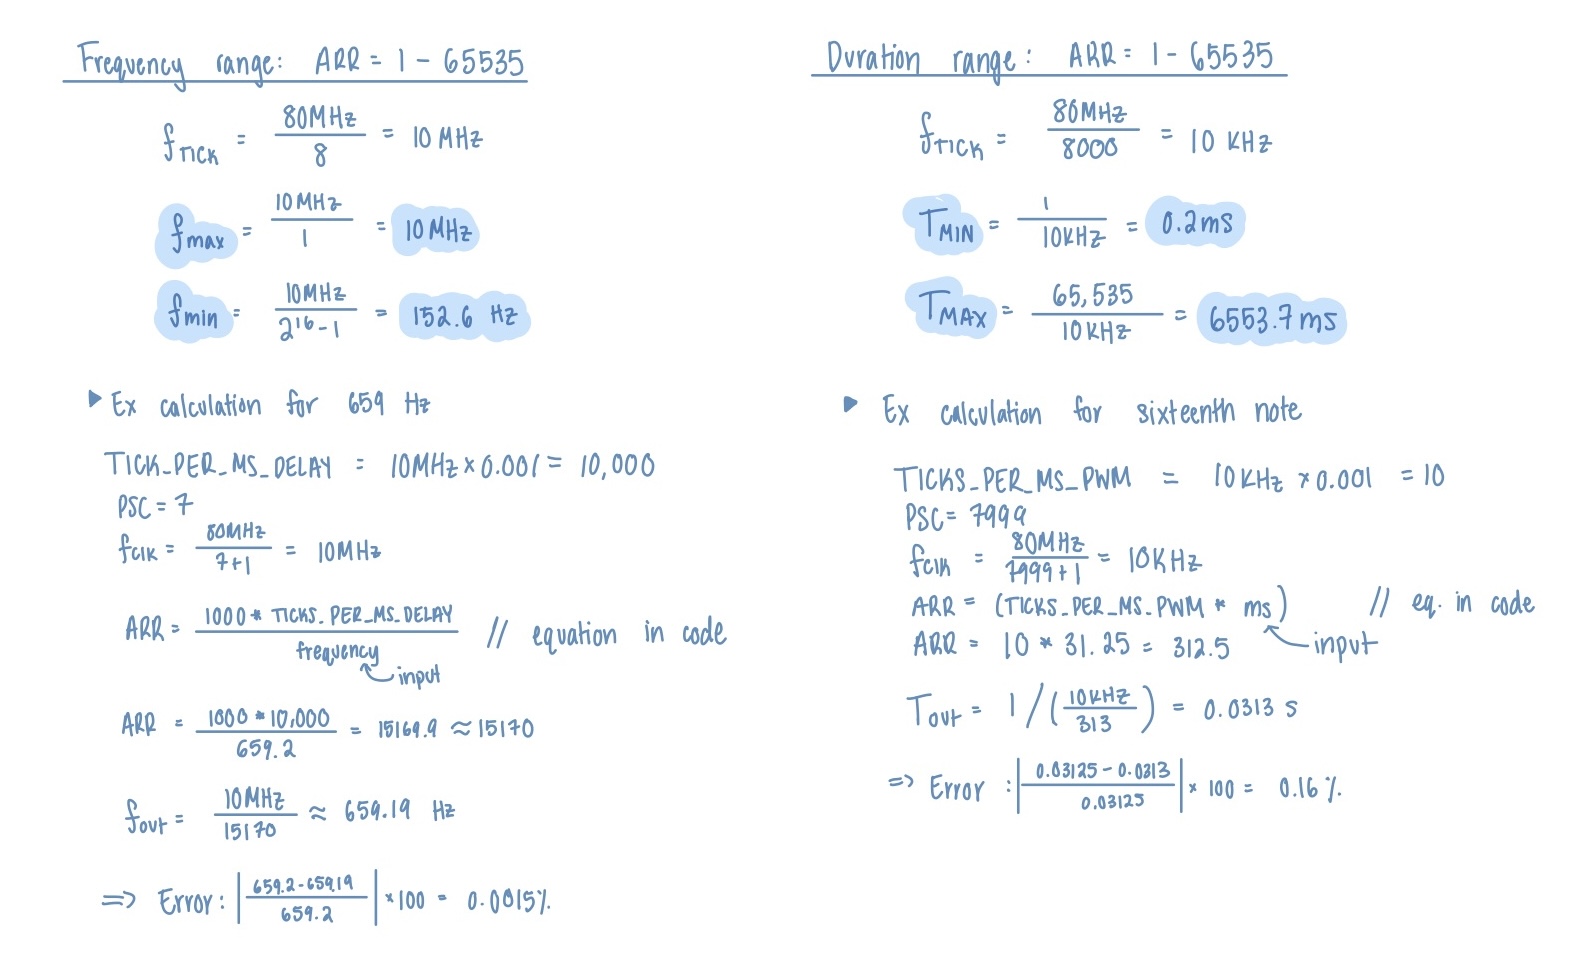 Frequency range: ARR = 1 - 65535
f_TICK = 80MHz / 8 = 10 MHz
f_max = 10MHz / 1 = 10 MHz
f_min = 10MHz / 2^16 - 1 = 152.6 Hz
▶ Ex calculation for 659 Hz
TICK_PER_MS_DELAY = 10MHz × 0.001 = 10,000
PSC = 7
f_clk = 80MHz / 7+1 = 10MHz
ARR = 1000 * TICKS_PER_MS_DELAY / frequency // equation in code
input
ARR = 1000 * 10,000 / 659.2 = 15169.9 ≈ 15170
f_out = 10MHz / 15170 ≈ 659.19 Hz
=> Error: | 659.2 - 659.19 / 659.2 | × 100 = 0.0015%
Duration range: ARR = 1 - 65535
f_TICK = 80MHz / 8000 = 10 KHz
T_MIN = 1 / 10KHz = 0.2ms
T_MAX = 65,535 / 10KHz = 6553.7ms
▶ Ex calculation for sixteenth note
TICKS_PER_MS_PWM = 10KHz × 0.001 = 10
PSC = 7999
f_clk = 80MHz / 7999+1 = 10KHz
ARR = (TICKS_PER_MS_PWM * ms) // eq. in code
ARR = 10 * 31.25 = 312.5 input
T_out = 1 / (10KHZ / 313) = 0.0313 s
=> Error : | 0.03125 - 0.0313 / 0.03125 | × 100 = 0.16 %